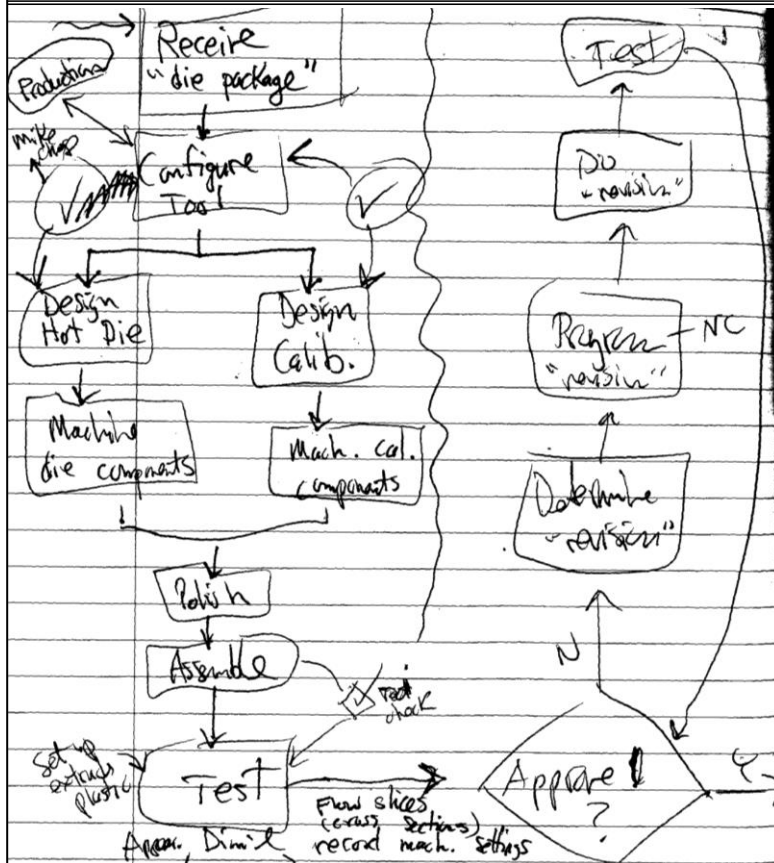 Receive
"die package"
Production
mike
Configure
Tool
Design
Hot Die
Design
Calib.
Machine
die components
Mach. Cal.
components
Polish
Assemble
check
Set up
extrude
plastic
Test
Flow slices
(cross sections)
record mach. settings
Test
Do
"revision"
Program - NC
"revision"
Determine
"revision"
N
Approve
?
Y